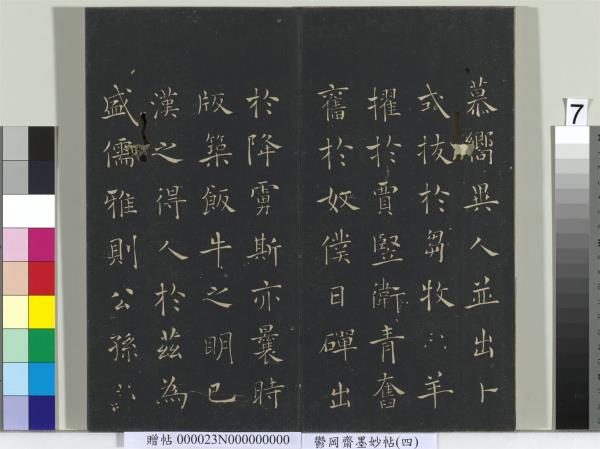 慕嚮異人並出卜
式拔於芻牧羊
擢於賈豎衛青奮
舊於奴僕日磾出
於降虜斯亦曩時
版築飯牛之明已
漢之得人於茲為
盛儒雅則公孫
7
贈帖 000023N000000000
鬱岡齋墨妙帖(四)